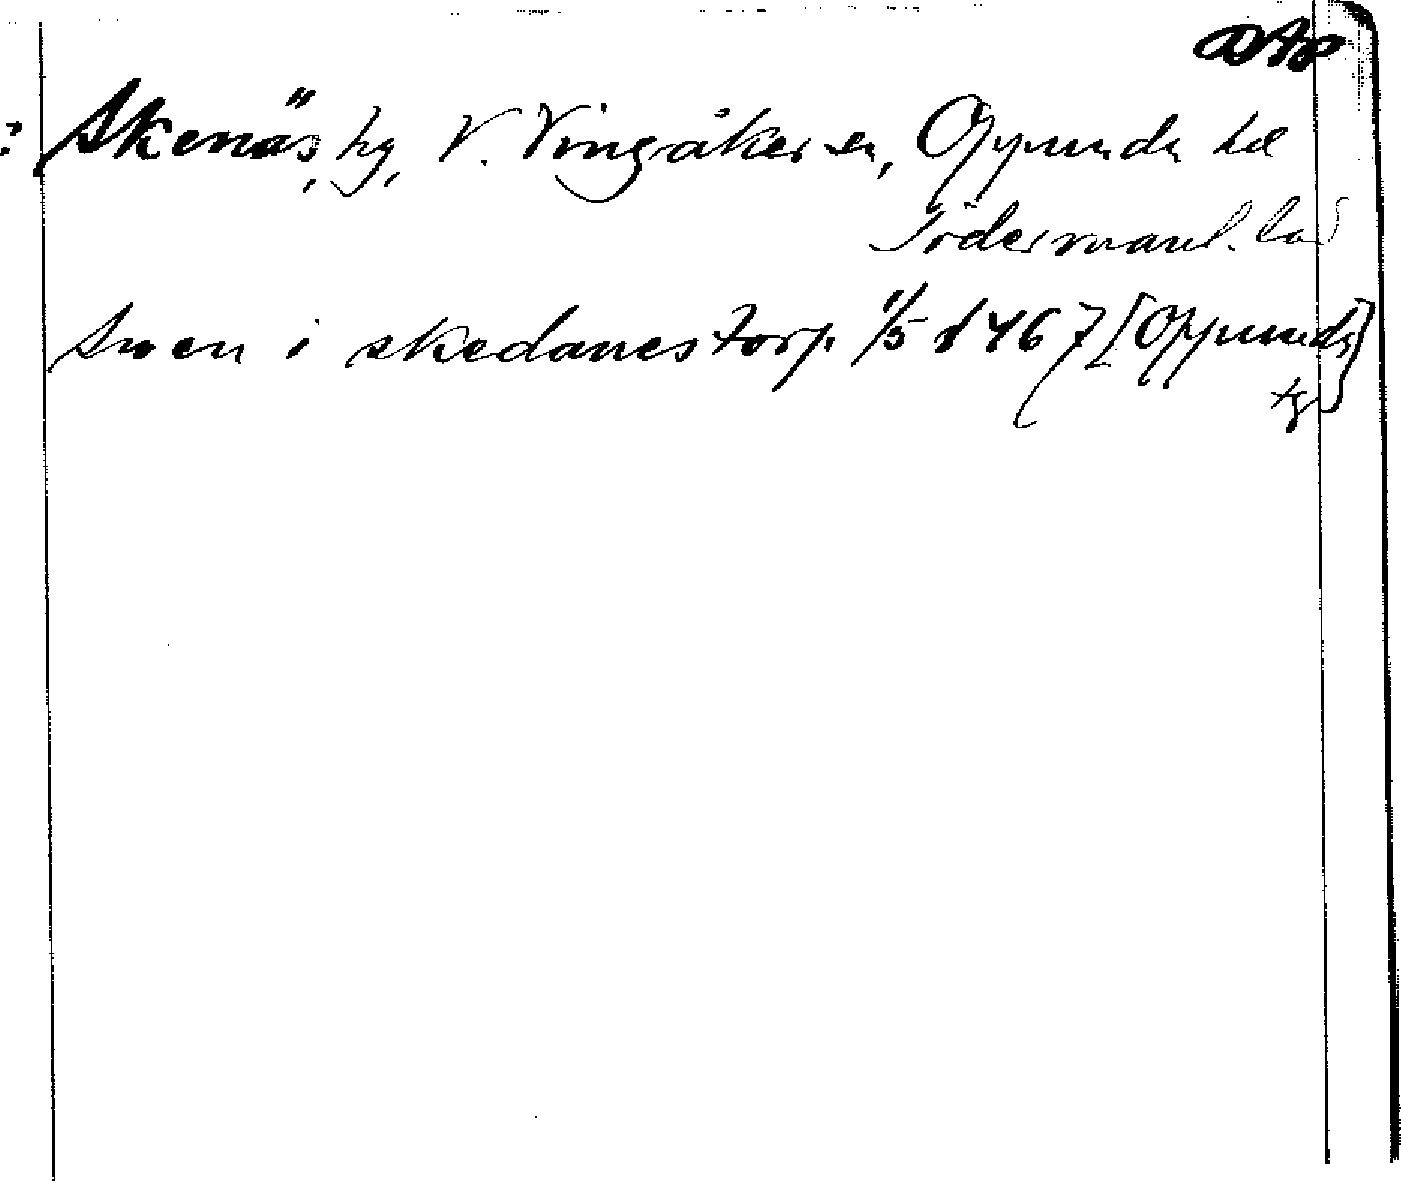 : Skenäs, hg, V. Vingåker sn, Oppunda hd
Södermanl. län
Swen i skedanestorp 11/5 1467 [Oppunda]
tg